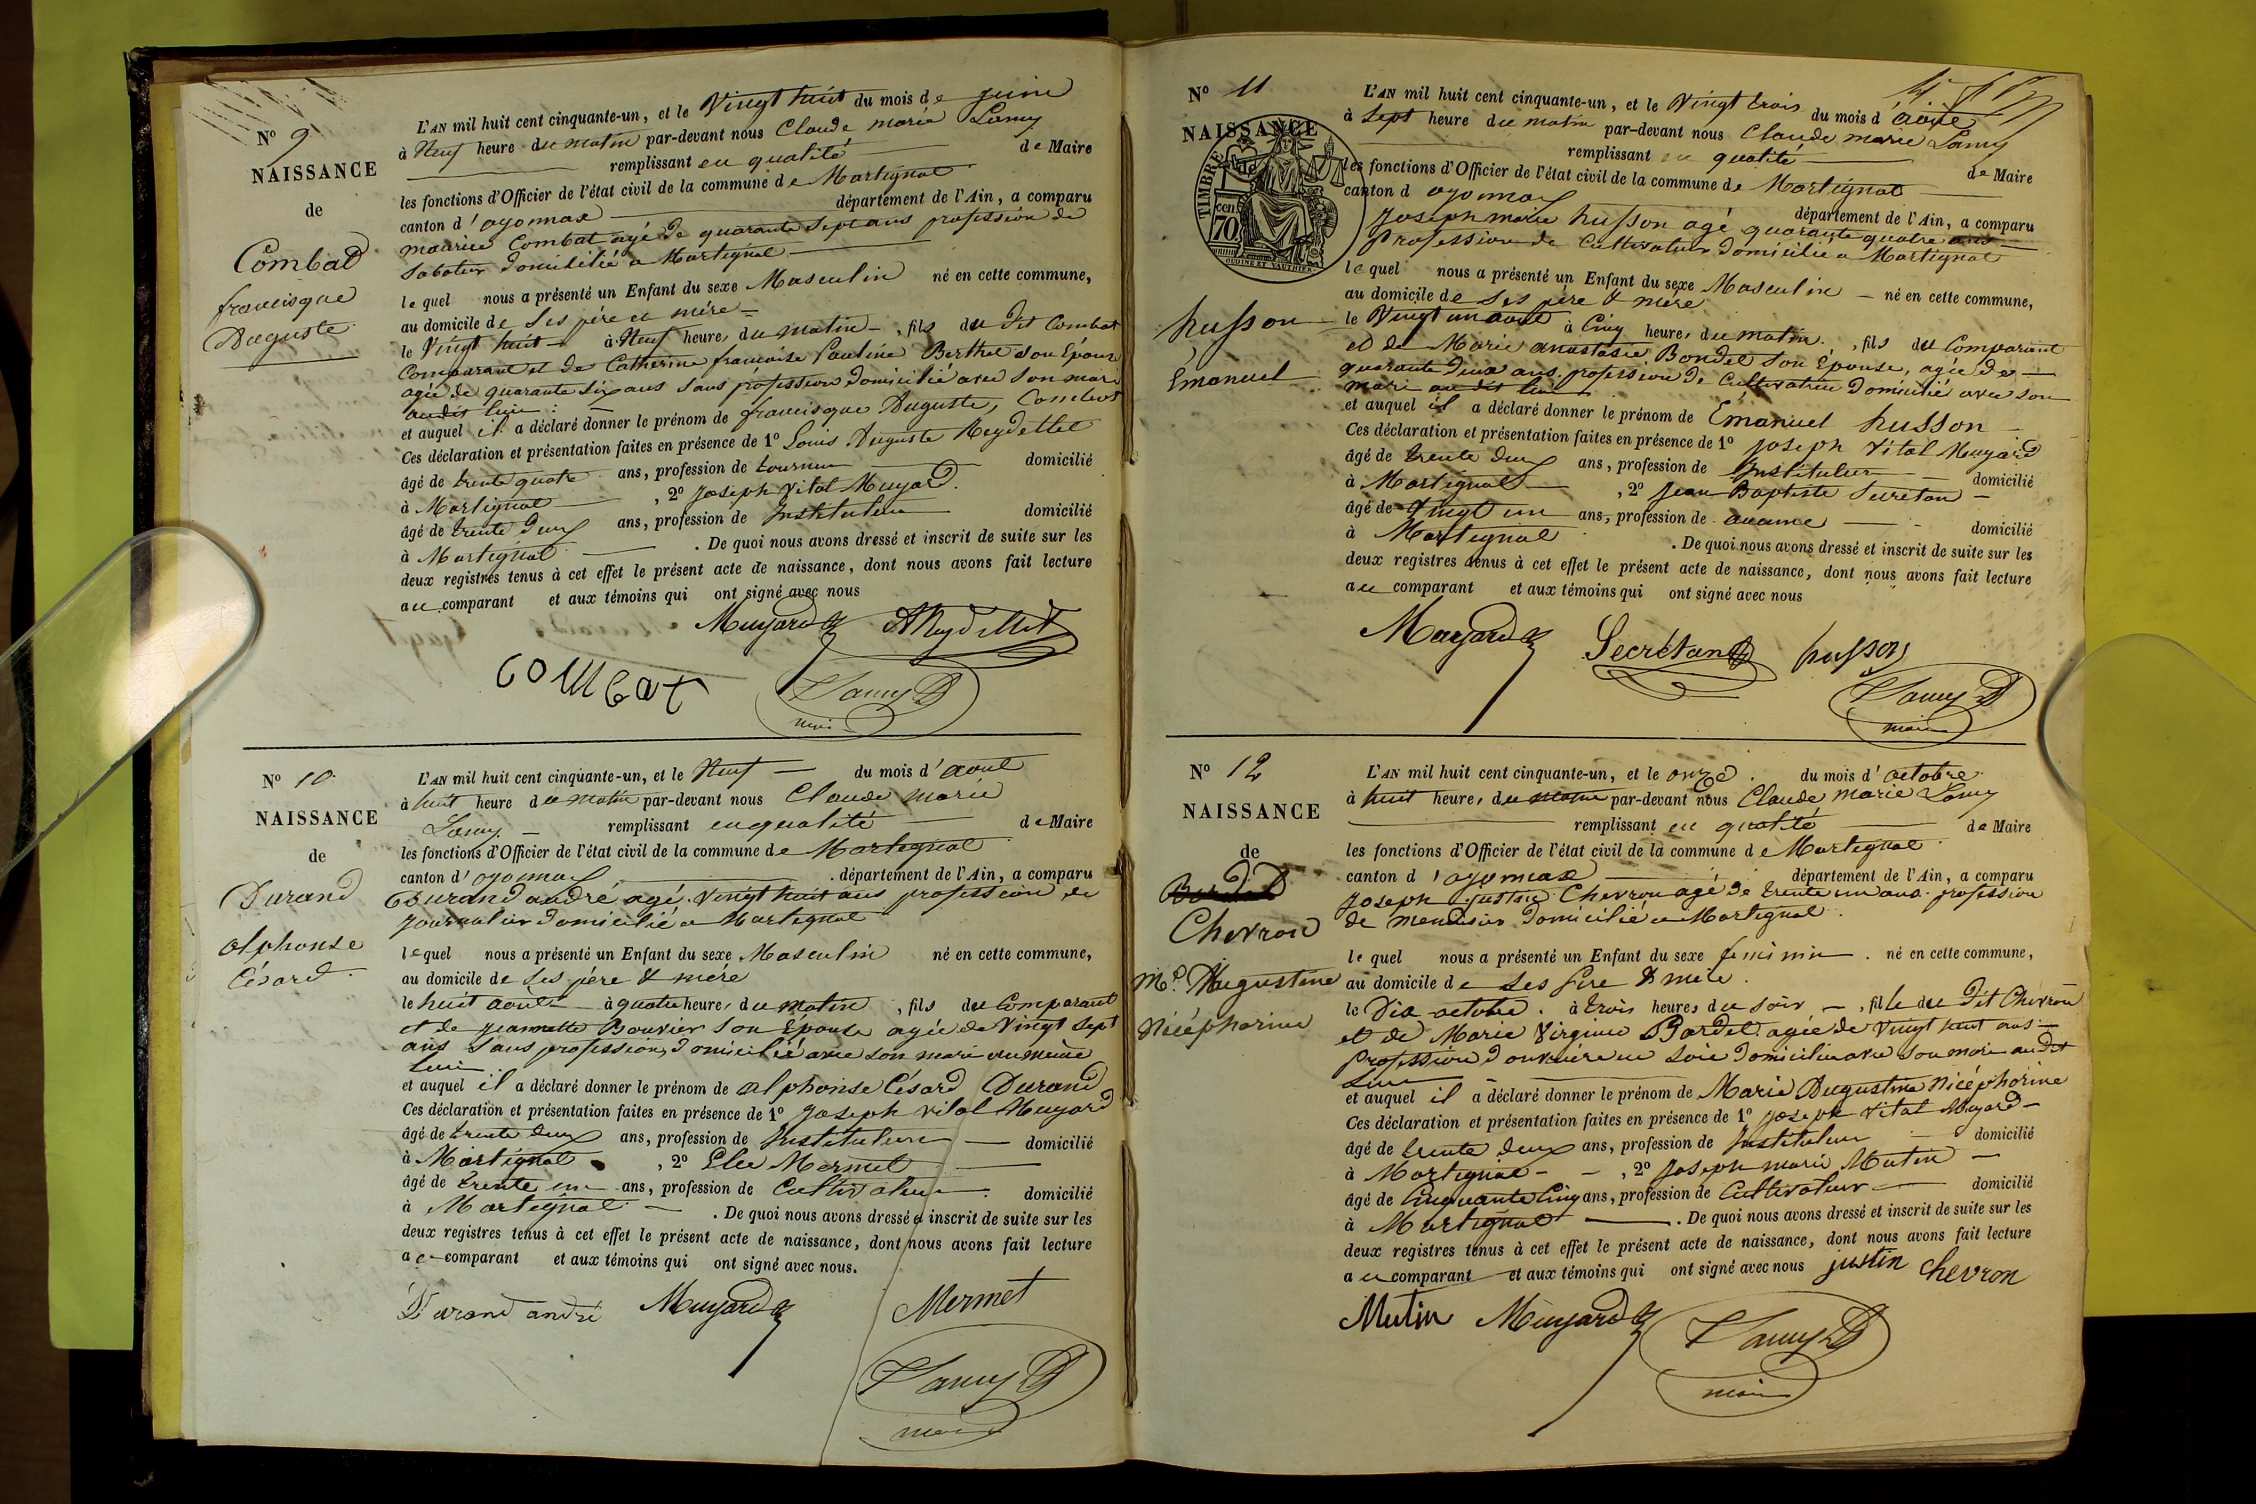 N° 9
NAISSANCE
de
Combat
francisque
Auguste
L'AN mil huit cent cinquante-un, et le Vingt huit du mois de juin
à Neuf heure du matin par-devant nous Claude marie Lamy
remplissant en qualité de Maire
les fonctions d'Officier de l'état civil de la commune de Martignat
canton d'oyonnax département de l'Ain, a comparu
maurice Combat agé de quarante Sept ans profession de
Saboteur domicilié a Martignat
lequel nous a présenté un Enfant du sexe Masculin né en cette commune,
au domicile de Ses père et mère
le Vingt huit à Neuf heure, du matin, fils du dit Combat
Comparant et de Catherine francoise Pauline Berthet son Epouse
agée de quarante Six ans Sans profession domicilié avec Son mari
audit lieu
et auquel il a déclaré donner le prénom de francisque Auguste, Combat
Ces déclaration et présentation faites en présence de 1° Louis Auguste Reydellet
âgé de trente quatre ans, profession de tourneur domicilié
à Martignat, 2° Joseph Vital Muyard
âgé de trente deux ans, profession de Instituteur domicilié
à Martignat. De quoi nous avons dressé et inscrit de suite sur les
deux registres tenus à cet effet le présent acte de naissance, dont nous avons fait lecture
au comparant et aux témoins qui ont signé avec nous
Muyard AReydellet
combat Lamy
maire
N° 10
NAISSANCE
de
Durand
alphonse
Césard
L'AN mil huit cent cinquante-un, et le Neuf du mois d'aout
à huit heure du matin par-devant nous Claude marie
Lamy remplissant en qualité de Maire
les fonctions d'Officier de l'état civil de la commune de Martignat
canton d'oyonnax. département de l'Ain, a comparu
Durand andré agé Vingt huit ans profession de
journalier domicilié a Martignat
lequel nous a présenté un Enfant du sexe Masculin né en cette commune,
au domicile de Ses père & mère
le huit août à quatre heure, du matin, fils du Comparant
et de jeannette Bouvier Son Epouse agée de Vingt Sept
ans Sans profession, domicilié avec son mari au même
lieu
et auquel il a déclaré donner le prénom de alphonse Césard Durand
Ces déclaration et présentation faites en présence de 1° Joseph vital Muyard
âgé de trente deux ans, profession de Instituteur domicilié
à Martignat, 2° Elie Mermet
âgé de trente un ans, profession de Cultivateur. domicilié
à Martignat. De quoi nous avons dressé et inscrit de suite sur les
deux registres tenus à cet effet le présent acte de naissance, dont nous avons fait lecture
au comparant et aux témoins qui ont signé avec nous.
Durand andré Muyard Mermet
Lamy
maire
N° 11
NAISSANCE
de
TIMBRE
70 cen
OUDINÉ ET VAUTHIER
husson
Emanuel
L'AN mil huit cent cinquante-un, et le Vingt trois du mois d'août
à Sept heure du matin par-devant nous Claude marie Lamy
remplissant en qualité de Maire
les fonctions d'Officier de l'état civil de la commune de Martignat
canton d oyonnax département de l'Ain, a comparu
Joseph marie husson agé quarante quatre ans
Profession de Cultivateur domicilié a Martignat
lequel nous a présenté un Enfant du sexe Masculin né en cette commune,
au domicile de Ses père & mère
le Vingt un août à Cinq heure, du matin, fils du Comparant
et de Marie anastasie Bondet Son Epouse, agée de
quarante deux ans. profession de Cultivateur domicilié avec son
mari au dit lieu
et auquel il a déclaré donner le prénom de Émanuel husson
Ces déclaration et présentation faites en présence de 1° Joseph Vital Muyard
âgé de trente deux ans, profession de Instituteur domicilié
à Martignat, 2° Jean Baptiste Secretan
âgé de Vingt un ans, profession de aucune domicilié
à Martignat. De quoi nous avons dressé et inscrit de suite sur les
deux registres tenus à cet effet le présent acte de naissance, dont nous avons fait lecture
au comparant et aux témoins qui ont signé avec nous
Muyard Secrétan husson
Lamy
maire
N° 12
NAISSANCE
de
Chevron
Mie Augustine
Nicéphorine
L'AN mil huit cent cinquante-un, et le onze du mois d'octobre
à huit heure, du matin par-devant nous Claude Marie Lamy
remplissant en qualité de Maire
les fonctions d'Officier de l'état civil de la commune de Martignat
canton d'oyonnax département de l'Ain, a comparu
Joseph justin Chevron agé de trente un ans profession
de menuisier domicilié a Martignat
lequel nous a présenté un Enfant du sexe feminin. né en cette commune,
au domicile de Ses père & mère
le Dix octobre. à trois heures du soir, fille du dit Chevron
et de Marie Virginie Bardet agée de Vingt huit ans
Profession d'ouvrière en Soie domicilie avec Son mari au dit
Lieu
et auquel il a déclaré donner le prénom de Marie Augustine Nicéphorine
Ces déclaration et présentation faites en présence de 1° Joseph Vital Muyard
âgé de trente deux ans, profession de Instituteur domicilié
à Martignat, 2° Joseph marie Mutin
âgé de Cinquante Cinq ans, profession de Cultivateur domicilié
à Martignat. De quoi nous avons dressé et inscrit de suite sur les
deux registres tenus à cet effet le présent acte de naissance, dont nous avons fait lecture
au comparant et aux témoins qui ont signé avec nous justin chevron
Mutin Muyard Lamy
maire